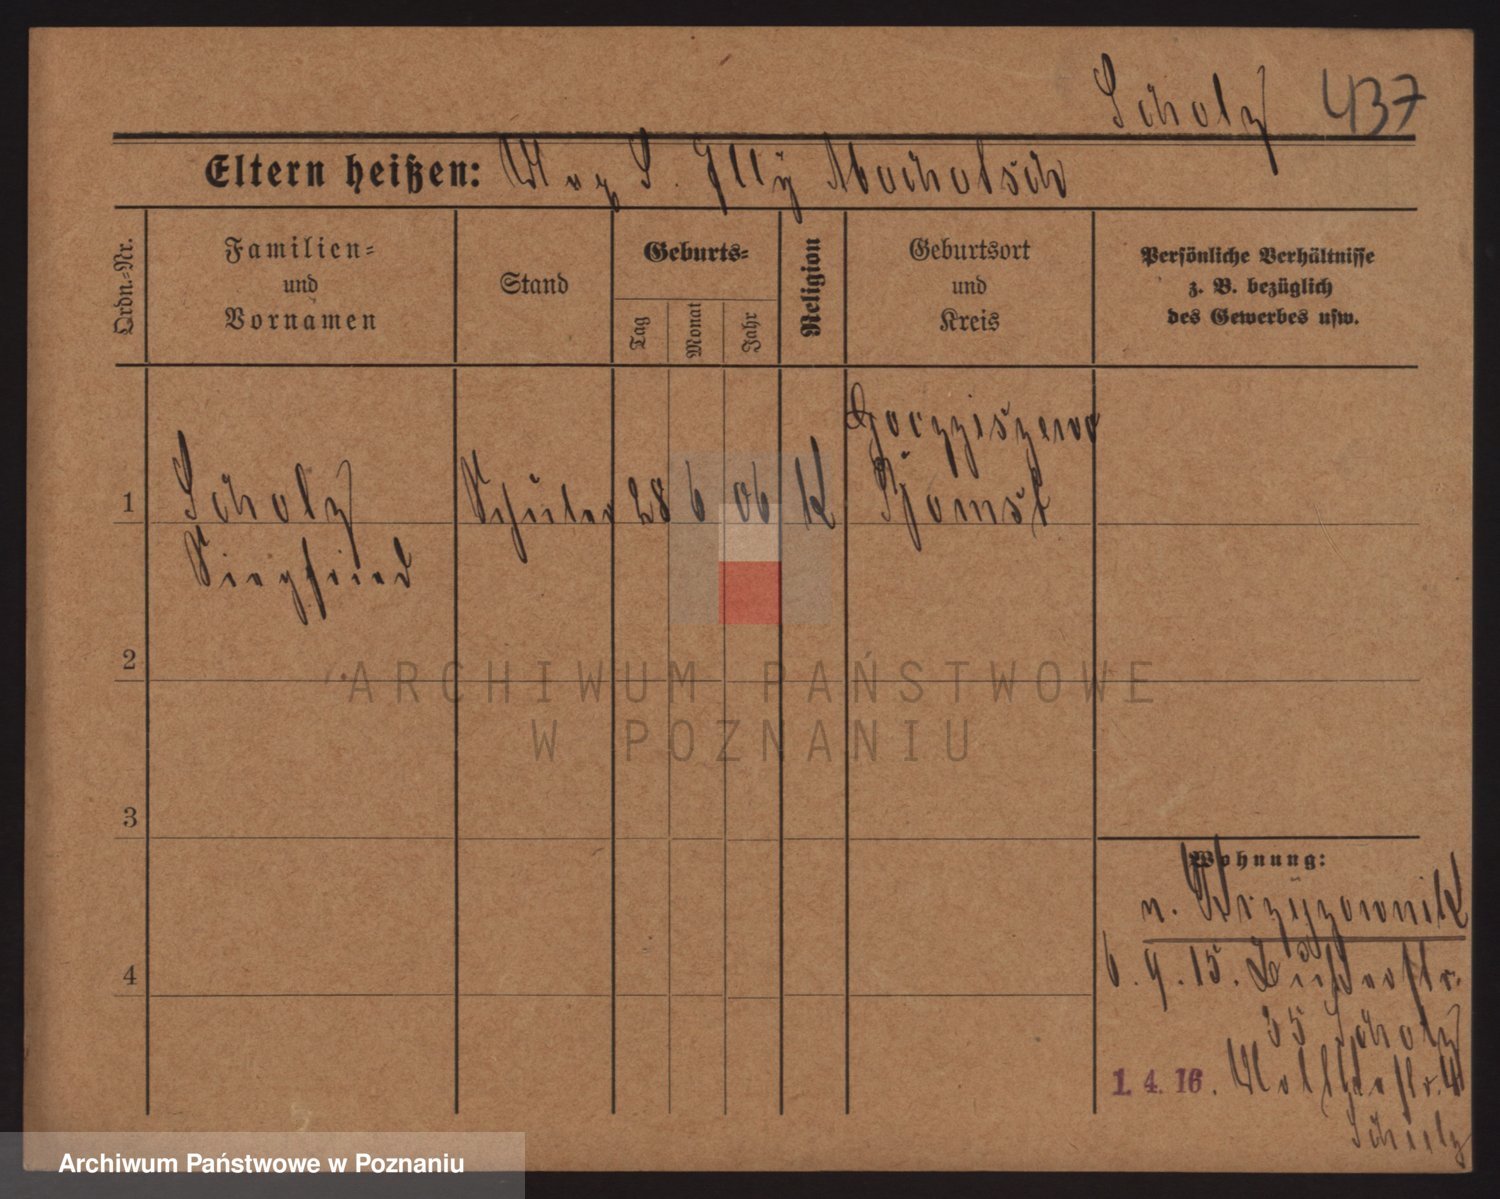 Scholz 437
Eltern heißen:
Ordn.-Nr.
Familien- und Vornamen
Stand
Geburts-
Tag
Monat
Jahr
Religion
Geburtsort und Kreis
Persönliche Verhältnisse
z. B. bezüglich
des Gewerbes usw.
1
Scholz
Siegfried
Schüler 28 6 06 K
Bomst
2
3
4
Wohnung:
n. Krzyzownik
6. 9. 15.
35 Scholz
1. 4. 16.
Scholz
ARCHIWUM PAŃSTWOWE
W POZNANIU
Archiwum Państwowe w Poznaniu